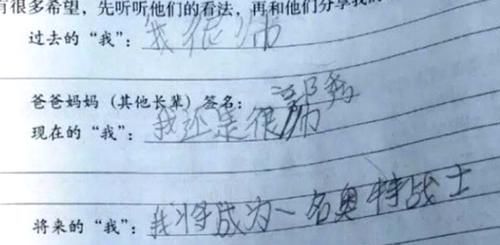 有很多希望，先听听他们的看法，再和他们分享我的
过去的“我”：我很帅
爸爸妈妈（其他长辈）签名：
现在的“我”：我还是很帅
将来的“我”：我将成为一名奥特战士